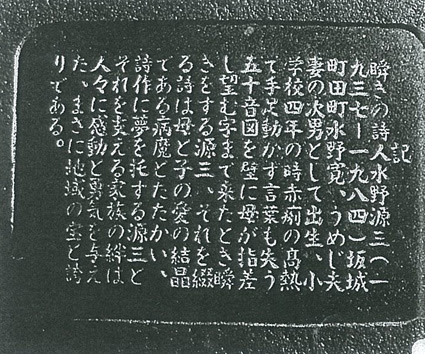 記
瞬きの詩人水野源三(一
九三七ー一九八四)坂城
町田町水野寛、うめじ夫
妻の次男として出生、小
学校四年の時赤痢の高熱
で手足動かす言葉も失う
五十音図を壁に母が指差
し望む字まで来たとき瞬
きをする源三、それを綴
る詩は母と子の愛の結晶
である病魔とたたかい、
詩作に夢を托する源三と
それを支える家族の絆は
人々に感動と勇気を与え
た、まさに地域の宝と誇
りである。